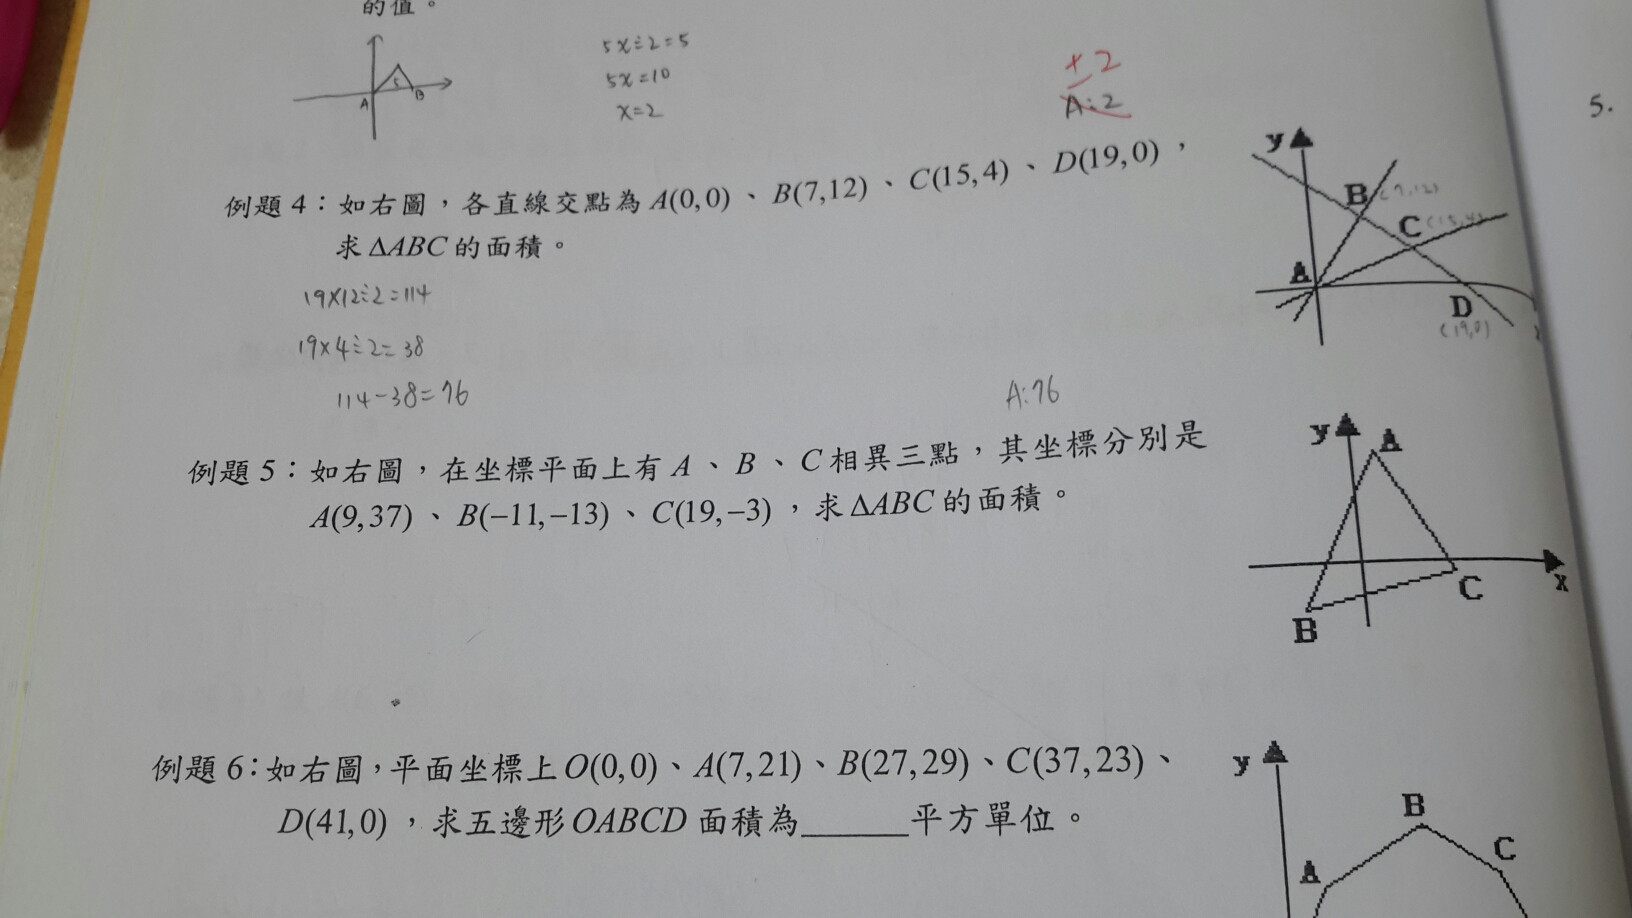 的值。
5x÷2=5
5x=10
x=2
+2
A:2
5
A
B
5.
例題4：如右圖，各直線交點為A(0,0)、B(7,12)、C(15,4)、D(19,0)，
求ΔABC的面積。
19×12÷2=114
19×4÷2=38
114-38=76
A:76
y
B (7,12)
C (15,4)
A
D
(19,0)
例題5：如右圖，在坐標平面上有A、B、C相異三點，其坐標分別是
A(9,37)、B(−11,−13)、C(19,−3)，求ΔABC的面積。
y
A
x
C
B
例題6：如右圖，平面坐標上O(0,0)、A(7,21)、B(27,29)、C(37,23)、
D(41,0)，求五邊形OABCD面積為______平方單位。
y
B
C
A